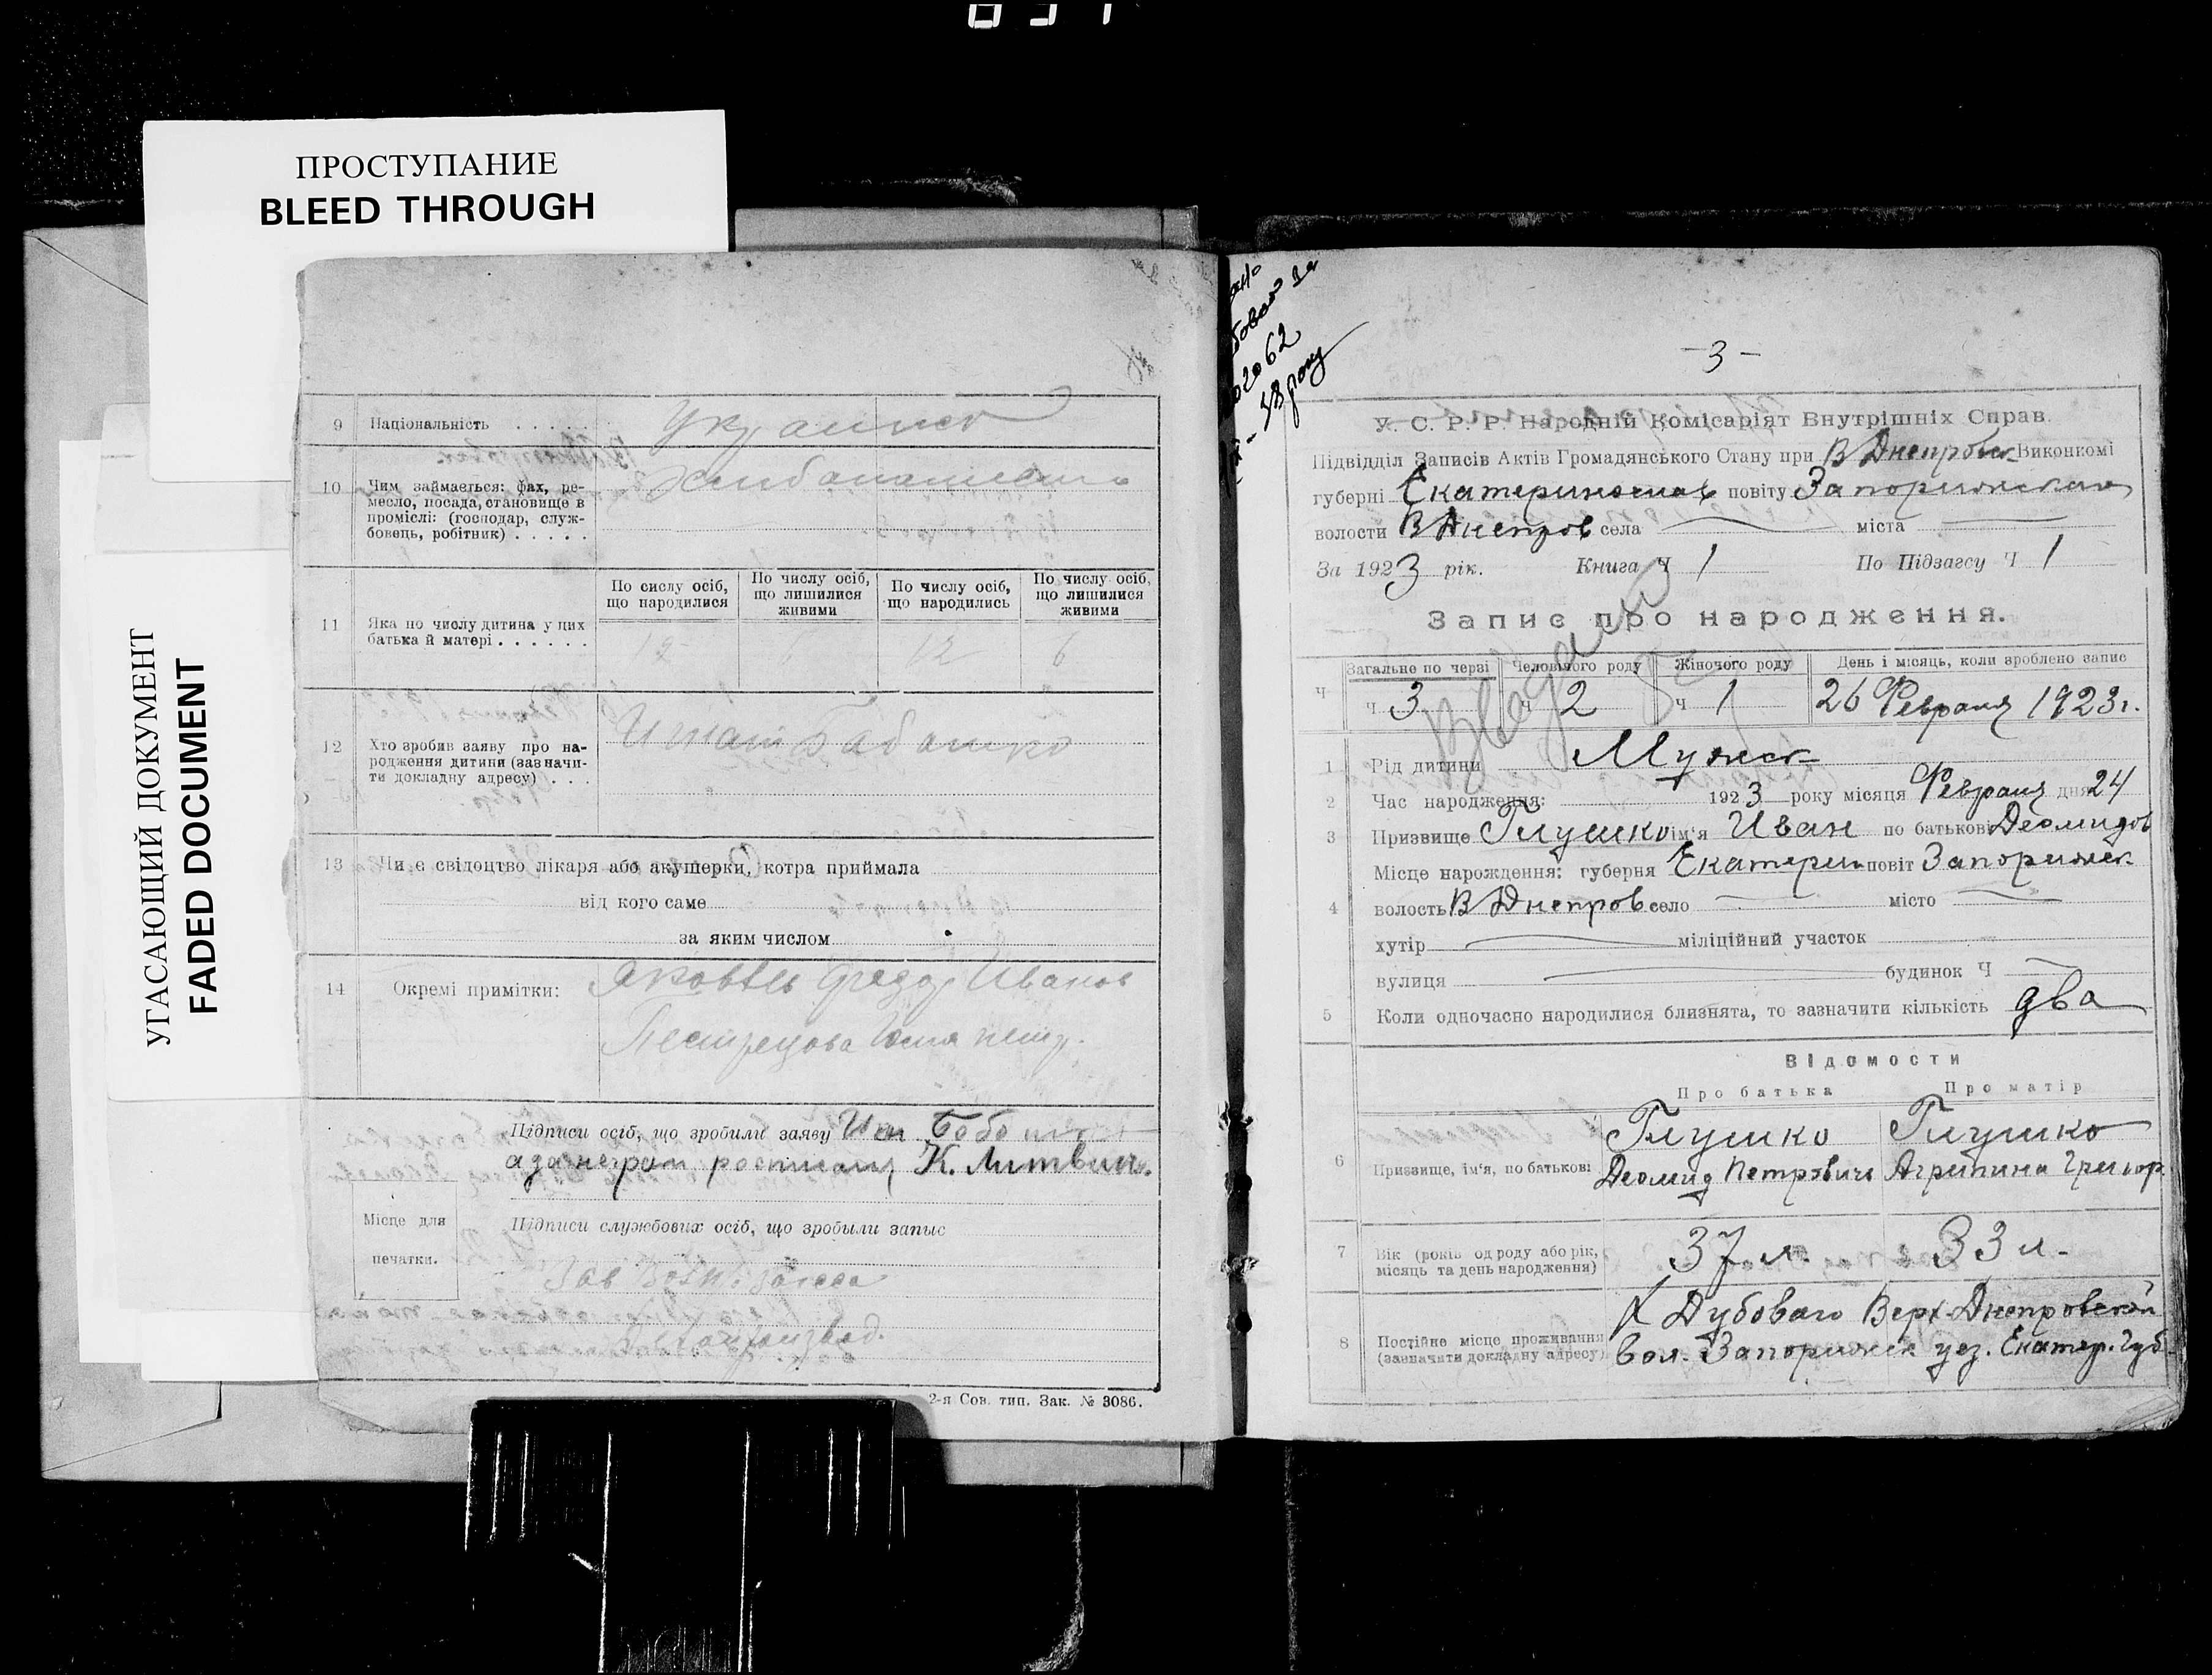 ПРОСТУПАНИЕ
BLEED THROUGH
УГАСАЮЩИЙ ДОКУМЕНТ
FADED DOCUMENT
9 Національність . . . . . Украинск
10 Чим займається: фах, ре-
месло, посада, становище в
проміслі: (господар, служ-
бовець, робітник) . . . . .
11 Яка по числу дитина у цих
батька й матері . . . . . .
По сислу осіб, що народилися
По числу осіб, що лишилися живими
По числу осіб, що народились
По числу осіб, що лишилися живими
12 12 6
12 Хто зробив заяву про на-
родження дитини (зазначи-
ти докладну адресу) . . .
13 Чи є свідоцтво лікаря або акушерки, котра приймала
від кого саме
за яким числом
14 Окремі примітки: Яковль Федор Иванов
Пестрецова петр.
Підписи осіб, що зробили заяву
К. Литвин
Місце для
печатки.
Підписи службових осіб, що зробыли запыс
2-я Сов. тип. Зак. № 3086.
2062
року
-3-
У. С. Р. Р. Народній Комісаріят Внутрішніх Справ.
Підвідділ Записів Актів Громадянського Стану при В Днепровск Виконкомі
губерні Екатеринослав повіту Запорижскаго
волости В Днепров села міста
За 1923 рік. Книга Ч 1 По Підзагсу Ч 1
Запис про народження.
Загальне по черзі Человічого роду Жіночого роду День і місяць, коли зроблено запис
Ч ч 3 ч 2 ч 1 26 Февраля 1923 г.
1 Рід дитини Мужск
2 Час народження: 1923 року місяця Февраля дня 24
3 Призвище Глушко ім'я Иван по батькові Деомидов
Місце нарождення: губерня Екатерин повіт Запорижск
4 волость В Днепров село місто
хутір міліційний участок
вулиця будинок Ч
5 Коли одночасно народилися близнята, то зазначити кількість два
Відомости
Про батька Про матір
6 Призвище, ім'я, по батькові
Глушко Глушко
Деомид Петровичь Агрипина Григор.
7 Вік (років од роду або рік,
місяць та день народження) 37 л. 33 л.
8 Постійне місце проживання
(зазначити докладну адресу)
Х Дубоваго Верх-Днепровской
вол. Запорижск уез. Екатер. Губ.